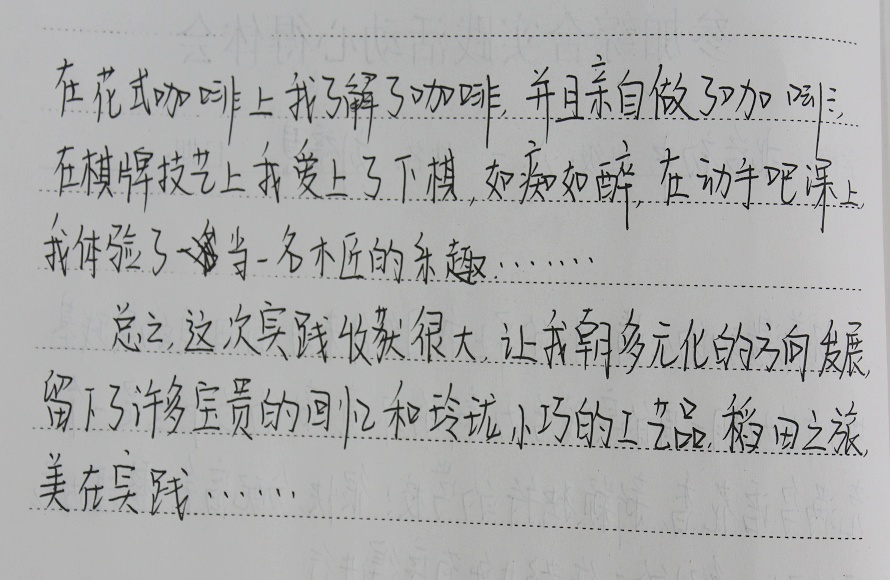 在花式咖啡上我了解了咖啡,并且亲自做了咖啡;
在棋牌技艺上我爱上了下棋,如痴如醉,在动手吧课上,
我体验了当一名木匠的乐趣.......
总之,这次实践收获很大,让我朝多元化的方向发展,
留下了许多宝贵的回忆和玲珑小巧的工艺品.稻田之旅,
美在实践......